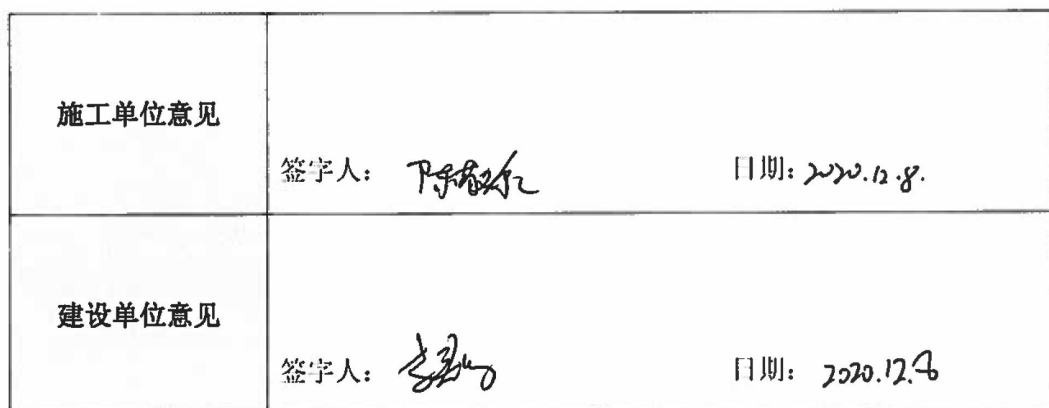 施工单位意见
签字人： 日期：2020.12.8.
建设单位意见
签字人： 日期： 2020.12.8